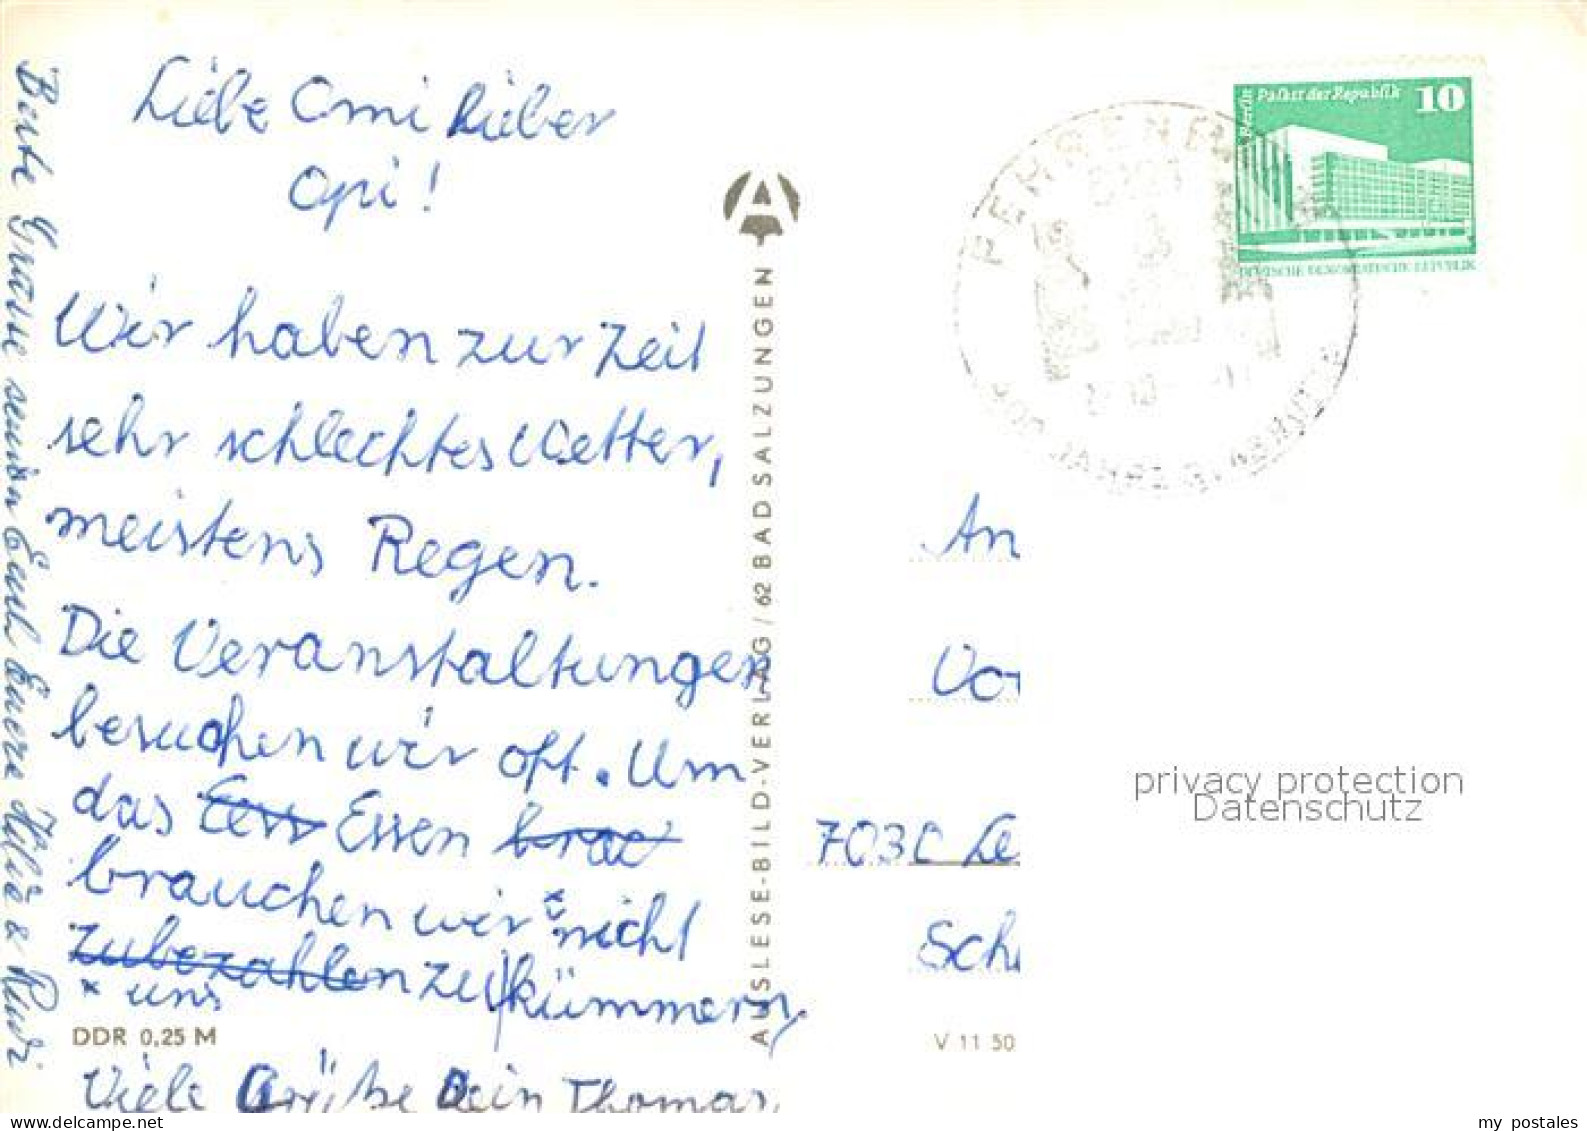 Liebe Omi Lieber
Opi!
Wir haben zur Zeit
sehr schlechtes Wetter,
meistens Regen.
Die Veranstaltungen
besuchen wir oft. Um
das Essen
brauchen wir * nicht
zubezahlen zu kümmern,
* uns
Viele Grüße Dein Thomas,
Beste Grüße senden Euch Euere & Rudi
DDR 0,25 M
AUSLESE-BILD-VERLAG / 62 BAD SALZUNGEN
V 11 50
Berlin Palast der Republik 10
DEUTSCHE DEMOKRATISCHE REPUBLIK
An
7030 Le
Sch
privacy protection
Datenschutz
my postales